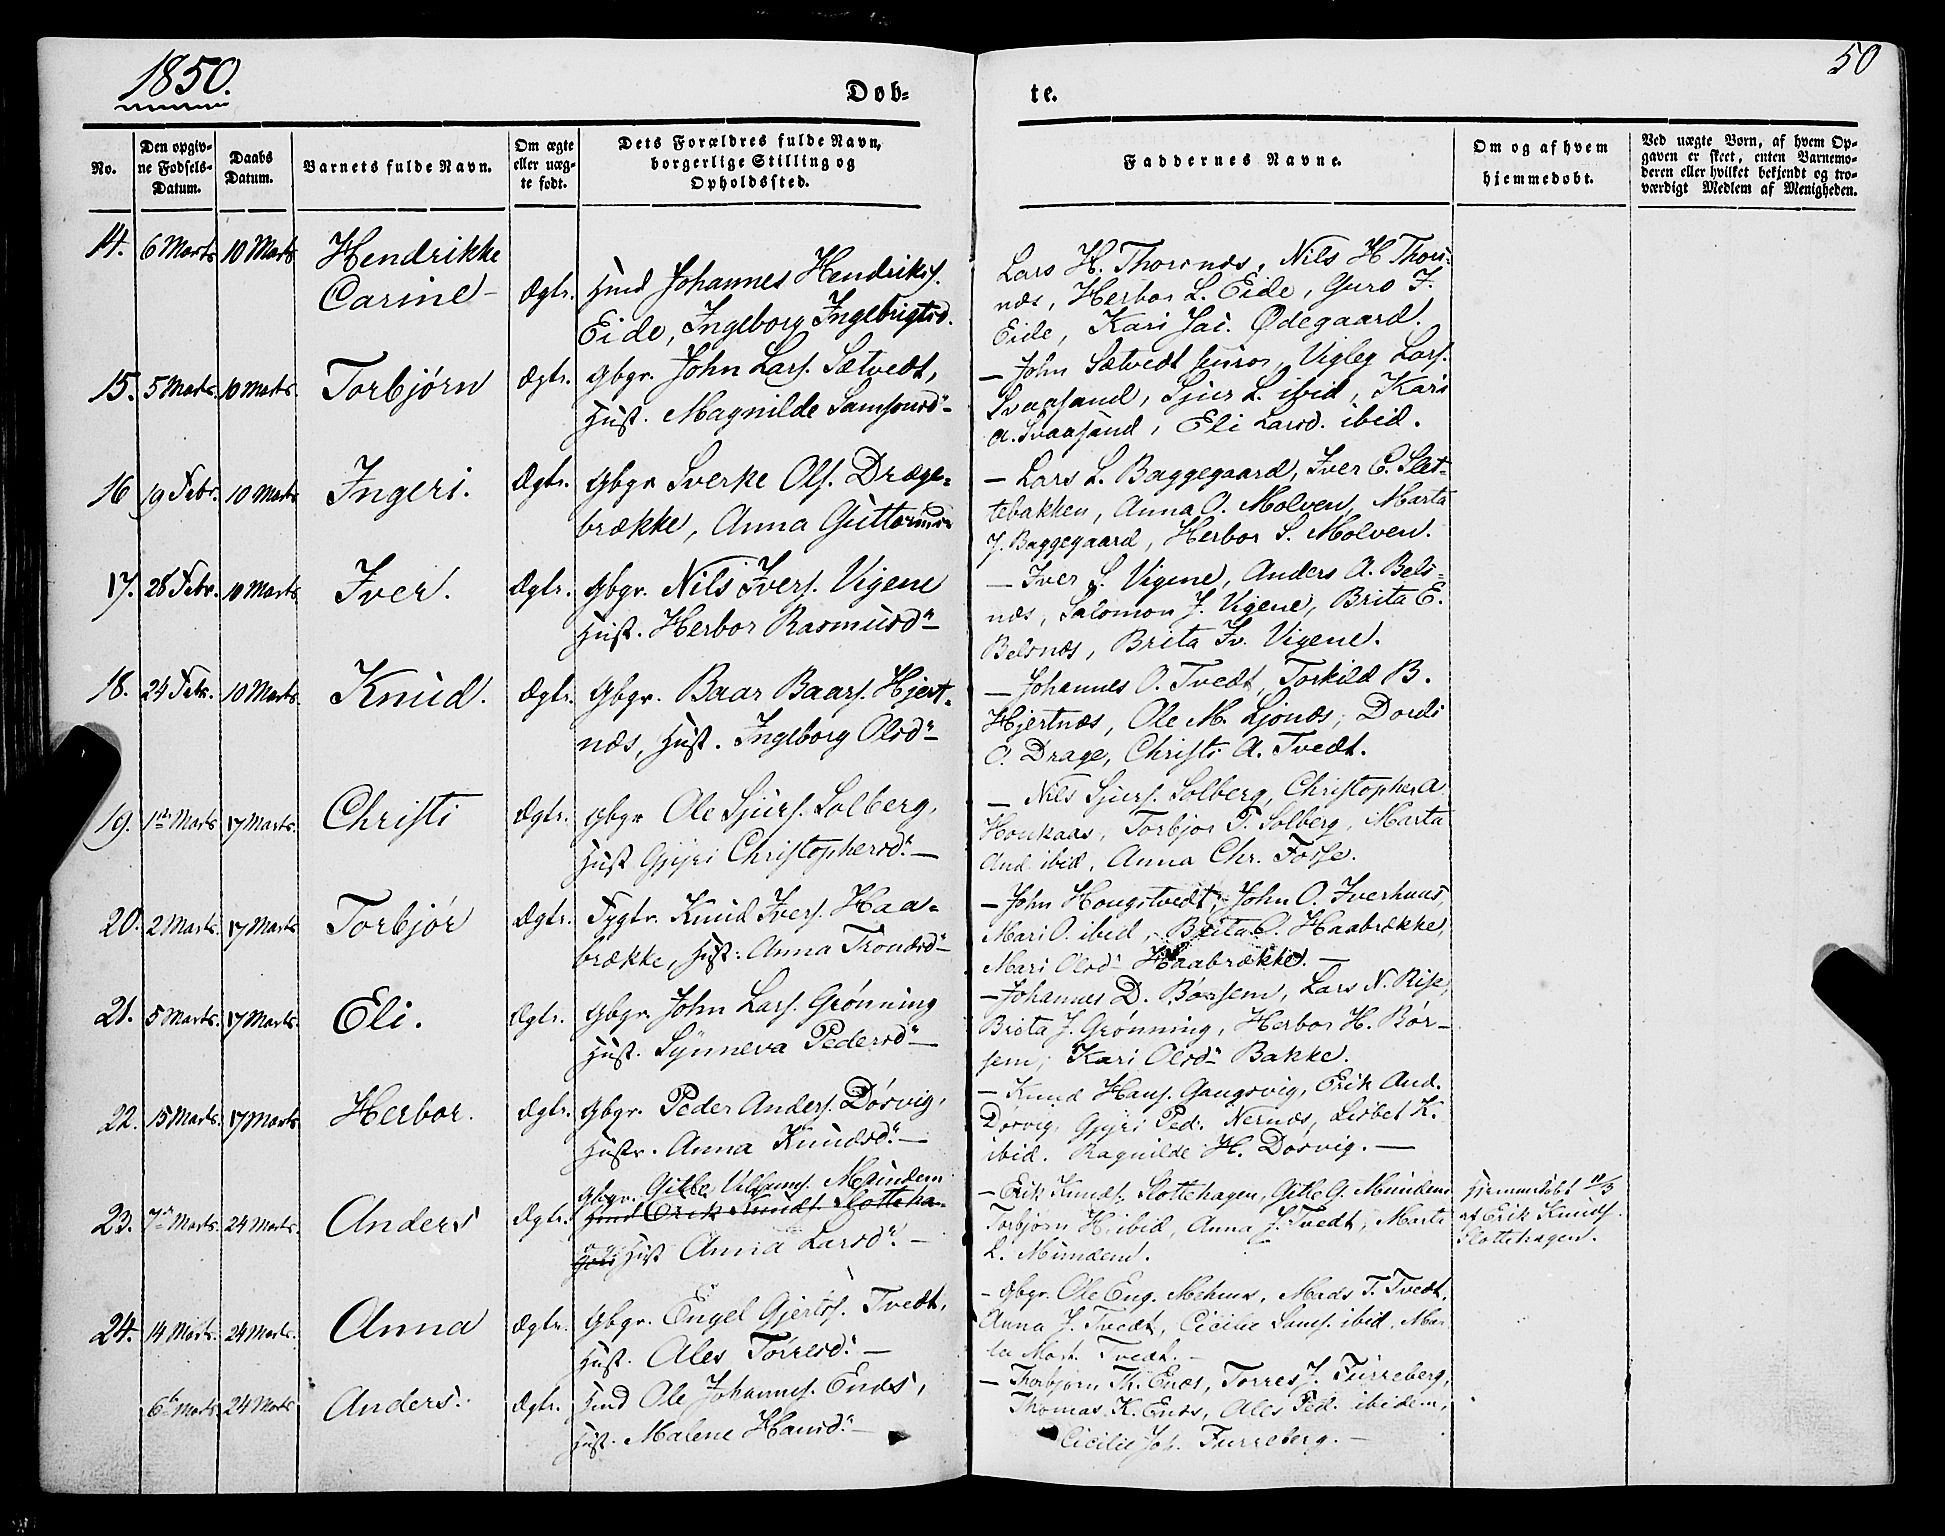 1850.
50
Døb-
te.
No.
Den opgiv-
ne Fødsels-
Datum.
Daabs
Datum.
Barnets fulde Navn.
Om ægte
eller uæg-
te født.
Dets Forældres fulde Navn,
borgerlige Stilling og
Opholdssted.
Faddernes Navne.
Om og af hvem
hjemmedøbt.
Ved uægte Børn, af hvem Op-
gaven er skeet, enten Barnemo-
deren eller hvilket bekjendt og tro-
værdigt Medlem af Menigheden.
14. 6 Marts 10 Marts Hendrikke
Carine - Ægte.
Hmd Johannes Hendriks.
Eide, Ingeborg Ingebrigtsd.
Lars H. Thorsnæs, Nils H Thors-
næs, Herbor L. Eide, Guro J.
Eide, Kari Jac. Ødegaard.
15. 5 Marts. 10 Marts. Torbjørn Ægte.
Gbgr. John Lars. Sætvedt,
Hust. Magnilde Samsonsd.-
- John Sætvedt junior, Vigleg Lars.
Svaasand, Sjur L. ibid, Kari
A. Svaasand, Eli Larsd. ibid.
16 19 Febr. 10 Marts Ingeri. Ægte.
Gbgr Sverke Ols. Dræge-
brække, Anna Guttormsd.
- Lars L. Baggegaard, Iver E. Slet-
tebakken, Anna O. Molven, Marta
J. Baggegaard, Herbor S. Molven.
17. 28 Febr. 10 Marts Iver. Ægte.
Gbgr. Nils Ivers. Vigene
Hust. Herbor Rasmusd.-
- Iver S. Vigene, Anders A. Bels-
næs, Salomon J. Vigene, Brita E.
Belsnæs, Brita Iv. Vigene.
18. 24 Febr. 10 Marts. Knud. Ægte.
Gbgr. Baar Baars. Hjert-
næs, Hust. Ingeborg Olsd.-
- Johannes O. Tvedt, Torkild B.
Hjertnæs, Ole M. Ljonæs, Dordi
O. Drage, Christi A. Tvedt.
19. 1ste Marts 17 Marts. Christi Ægte.
Gbgr Ole Sjurs. Solberg,
Hust Gjyri Christophersd.-
- Nils Sjurs. Solberg, Christopher A
Honkaas, Torbjor P. Solberg, Marta
And ibid, Anna Chr. Fosse.
20. 2 Marts. 17 Marts. Torbjør Ægte.
Fygtr. Knud Ivers. Haa-
brække, Hust. Anna Trondsd.-
- John Hougstvedt, John O. Iverhuus,
Mari O. ibid, Brita O. Haabrække,
Mari Olsd.- Haabrække. -
21. 5 Marts. 17 Marts. Eli. Ægte.
Gbgr. John Lars. Grønning
Hust. Synneva Pedersd.-
- Johannes D. Børsem, Lars N. Rise,
Brita J. Grønning, Herbor H. Bør-
sem, Kari Olsd.- Bakke.
22. 15 Marts. 17 Marts Herbor. Ægte.
Gbgr. Peder Anders. Døsvig,
Hustr. Anna Knudsd.-
- Knud Hans. Gangsvig, Erik And.
Døsvig, Gjyri Ped. Nernæs, Lisbet K.
ibid. Ragnilde H. Døsvig. -
23. 7de Marts. 24 Marts. Anders Ægte.
Gbgr. Gitle Villums. Mundem
Hmd Erik Knuds. Slotteha-
Hust Anna Larsd. -
- Erik Knuds. Slottehagen, Gitle G. Mundem
Torbjørn H. ibid, Anna J. Tvedt, Marta
L. Mundem.
Hjemmedøbt 10/3
af Erik Knuds.
Slottehagen.
24. 14 Marts. 24 Marts. Anna Ægte.
Gbgr. Engel Gjerts. Tvedt,
Hust. Ales Torresd. -
- Gbgr. Ole Eng. Mehuus, Mads T. Tvedt,
Anna J. Tvedt, Cicilie Sams. ibid, Mar-
ta Mort. Tvedt. -
6te Marts. 24 Marts Anders. Ægte.
Hmd Ole Johannes. Enæs,
Hust. Malene Hansd.-
- Thorbjørn Th. Enæs, Torres J. Furreberg,
Thomas K. Enæs, Ales Ped. ibidem,
Cicilie Joh. Furreberg. -